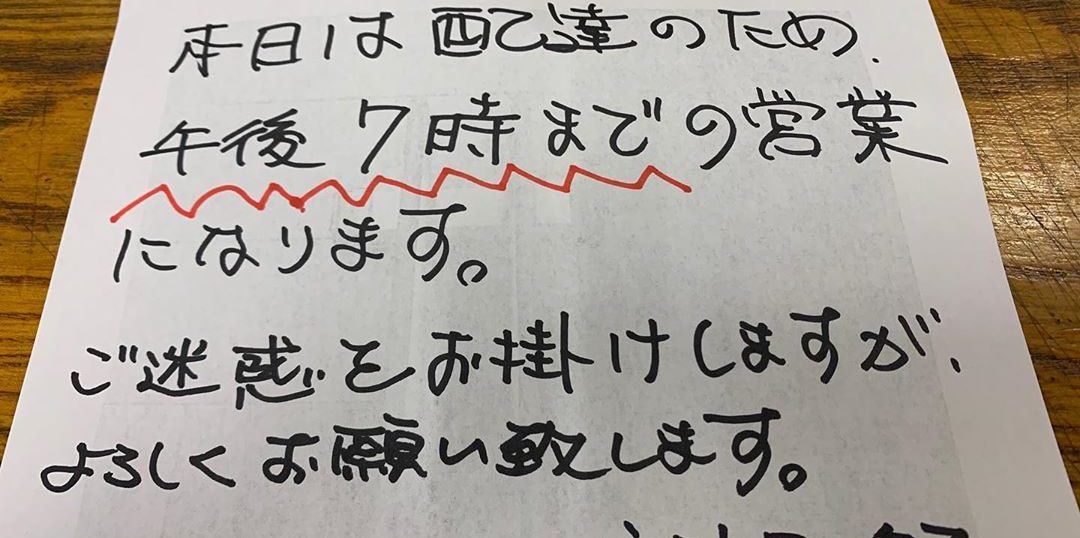 本日は配達のため、
午後7時までの営業
になります。
ご迷惑をお掛けしますが、
よろしくお願い致します。